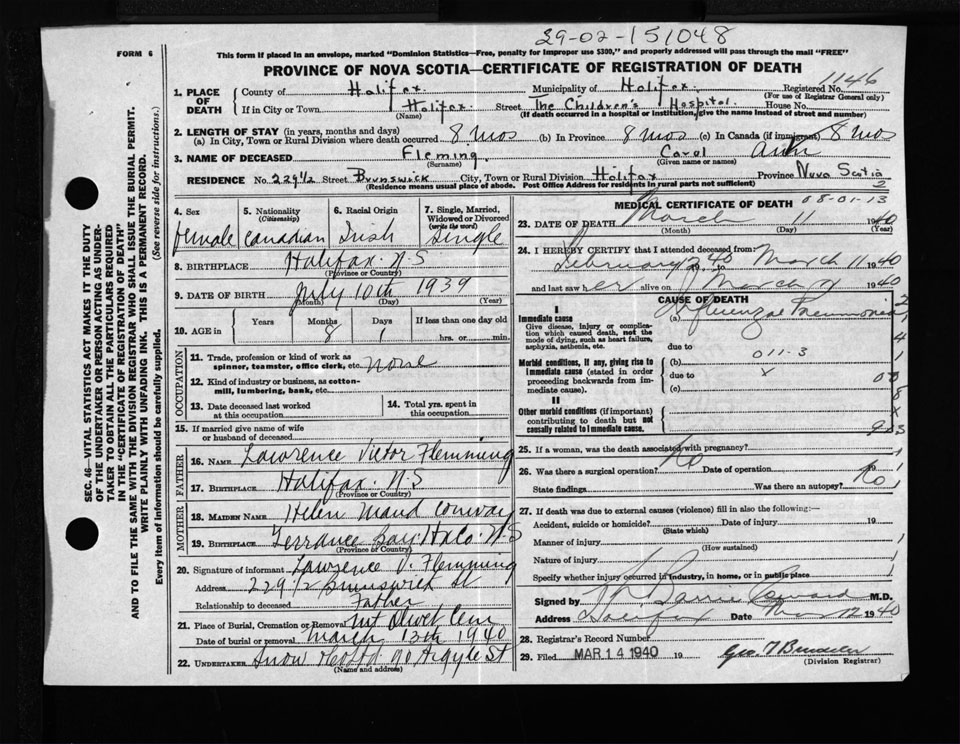 29-02-151048
FORM 6
This form if placed in an envelope, marked "Dominion Statistics—Free, penalty for improper use $300," and properly addressed will pass through the mail "FREE"
PROVINCE OF NOVA SCOTIA—CERTIFICATE OF REGISTRATION OF DEATH
1146
1. PLACE OF DEATH
County of Halifax. Municipality of Halifax. Registered No.
(For use of Registrar General only)
If in City or Town Halifax. Street The Children's Hospital. House No.
(Name) (If death occurred in a hospital or institution, give the name instead of street and number)
2. LENGTH OF STAY (in years, months and days)
(a) In City, Town or Rural Division where death occurred 8 mos (b) In Province 8 mos (c) In Canada (if immigrant) 8 mos
3. NAME OF DECEASED Fleming. Carol Ann
(Surname) (Given name or names)
RESIDENCE No. 229½ Street Brunswick City, Town or Rural Division Halifax Province Nova Scotia
(Residence means usual place of abode. Post Office Address for residents in rural parts not sufficient) 2
SEC. 46—VITAL STATISTICS ACT MAKES IT THE DUTY
OF THE UNDERTAKER OR PERSON ACTING AS UNDER-
TAKER TO OBTAIN ALL THE PARTICULARS REQUIRED
IN THE "CERTIFICATE OF REGISTRATION OF DEATH"
AND TO FILE THE SAME WITH THE DIVISION REGISTRAR WHO SHALL ISSUE THE BURIAL PERMIT.
WRITE PLAINLY WITH UNFADING INK. THIS IS A PERMANENT RECORD.
Every item of information should be carefully supplied. (See reverse side for instructions.)
4. Sex
female
5. Nationality
(Citizenship)
Canadian
6. Racial Origin
Irish
7. Single, Married,
Widowed or Divorced
(write the word)
Single
8. BIRTHPLACE Halifax. N.S
(Province or Country)
9. DATE OF BIRTH July 10th 1939
(Month) (Day) (Year)
10. AGE in Years Months Days If less than one day old
8 1 hrs. or min.
OCCUPATION
11. Trade, profession or kind of work as
spinner, teamster, office clerk, etc. none
12. Kind of industry or business, as cotton-
mill, lumbering, bank, etc.
13. Date deceased last worked
at this occupation
14. Total yrs. spent in
this occupation
15. If married give name of wife
or husband of deceased
FATHER
16. NAME Lawrence Victor Flemming
17. BIRTHPLACE Halifax. N.S
(Province or Country)
MOTHER
18. MAIDEN NAME Helen Maud Conway
19. BIRTHPLACE Terrance Bay. Halco. N.S
(Province or Country)
20. Signature of informant Lawrence V. Flemming
Address 229½ Brunswick St
Relationship to deceased Father
21. Place of Burial, Cremation or Removal Mt Olivet Cem
Date of burial or removal March 13th 1940
22. UNDERTAKER Snow 90 Argyle St
(Name and address)
MEDICAL CERTIFICATE OF DEATH
08-01-13
23. DATE OF DEATH March 11 1940
(Month) (Day) (Year)
24. I HEREBY CERTIFY that I attended deceased from:
February 2 40 to March 11 1940
and last saw her alive on March 1940
CAUSE OF DEATH
I
Immediate cause
Give disease, injury or complica-
tion which caused death, not the
mode of dying, such as heart failure,
asphyxia, asthenia, etc.
(a) Influenzae Pneumonia
due to
Morbid conditions, if any, giving rise to
immediate cause (stated in order
proceeding backwards from im-
mediate cause).
(b) 011-3
due to x
(c)
II
Other morbid conditions (if important)
contributing to death but not
causally related to immediate cause.
25. If a woman, was the death associated with pregnancy?
26. Was there a surgical operation? No Date of operation
State findings Was there an autopsy? No
27. If death was due to external causes (violence) fill in also the following:—
Accident, suicide or homicide? Date of injury 19
(State which)
Manner of injury
(How sustained)
Nature of injury
Specify whether injury occurred in industry, in home, or in public place
Signed by M.D.
Address Halifax Date Mar 12 1940
28. Registrar's Record Number
29. Filed MAR 14 1940 19
(Division Registrar)